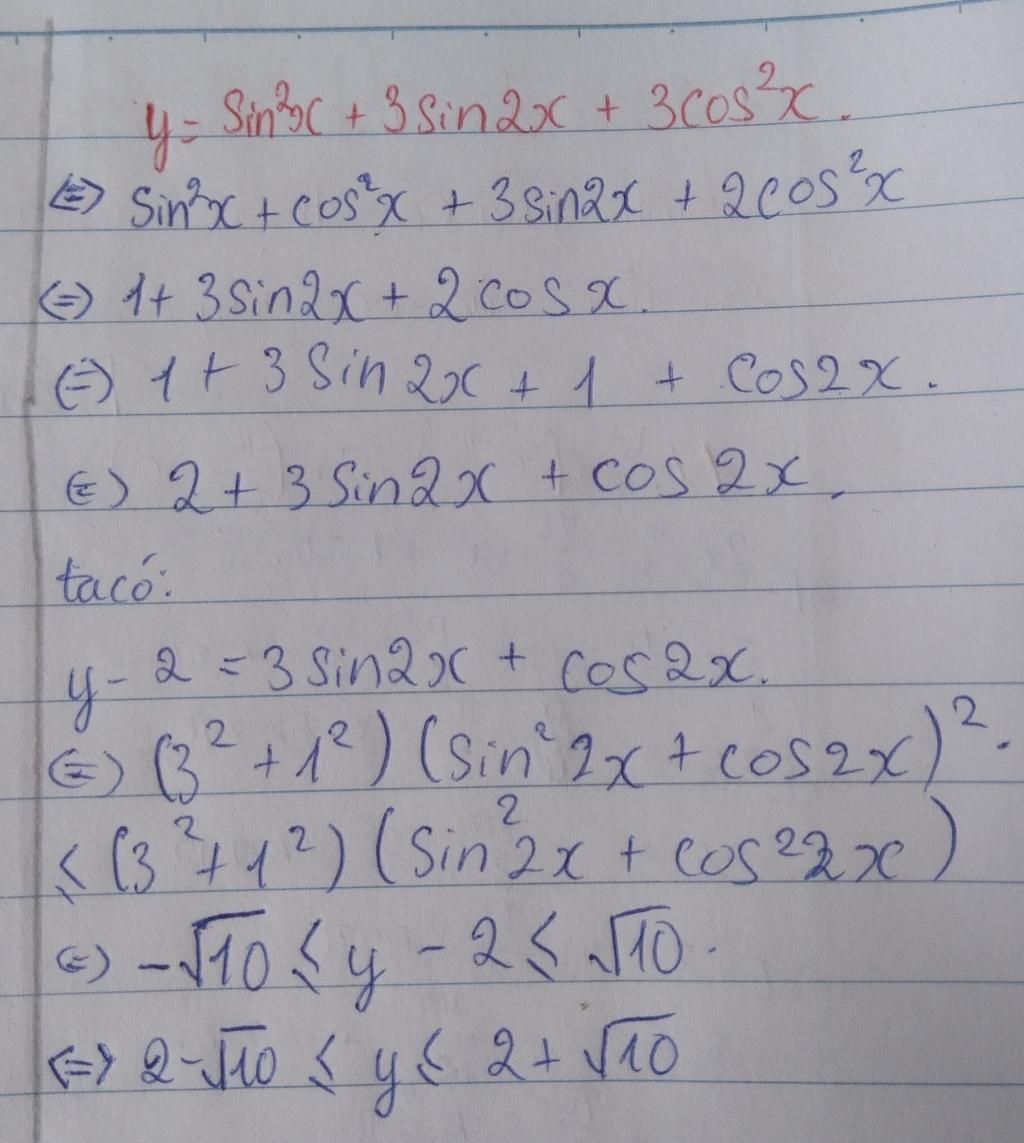 y = sin²x + 3sin2x + 3cos²x.
⇔ sin²x + cos²x + 3sin2x + 2cos²x
⇔ 1 + 3sin2x + 2cosx.
⇔ 1 + 3sin2x + 1 + cos2x.
⇔ 2 + 3sin2x + cos2x.
ta có:
y - 2 = 3sin2x + cos2x.
⇔ (3² + 1²)(sin²2x + cos2x)².
≤ (3² + 1²)(sin²2x + cos²2x)
⇔ -√10 ≤ y - 2 ≤ √10.
⇔ 2 - √10 ≤ y ≤ 2 + √10